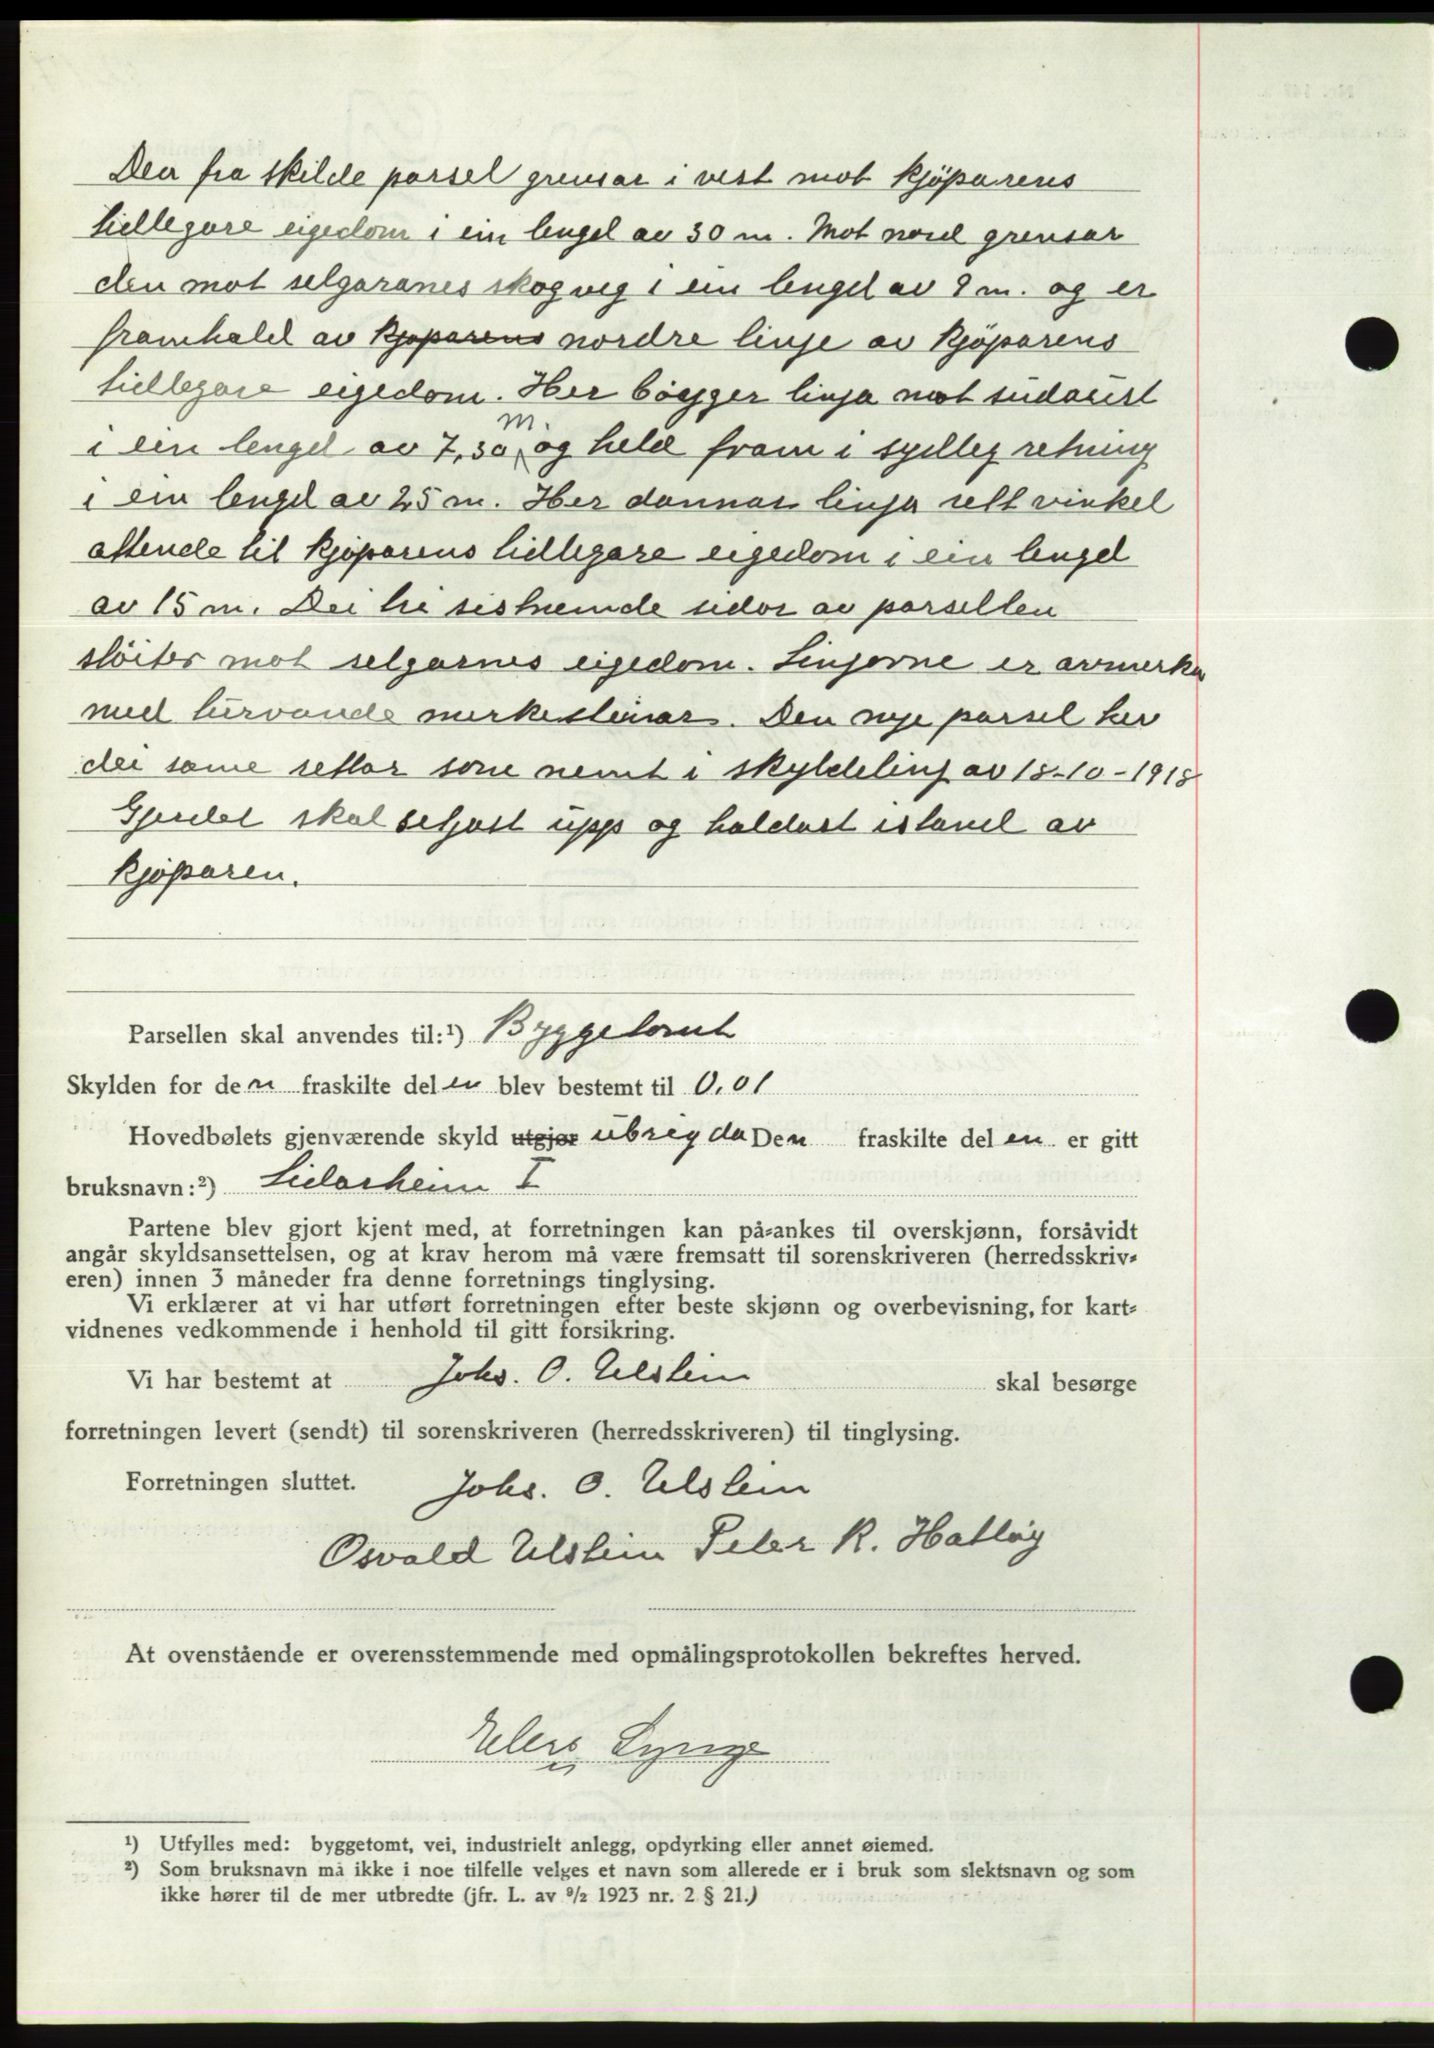 Den fra skilde parsel grensar i vest mot kjøparens
tidlegare eigedom i ein lengd av 30 m. Mot nord grensar
den mot selgaranes skogveg i ein lengd av 9 m. og er
framhald av kjøparens nordre linje av kjøparens
tidlegare eigedom. Her bøygger linja mot sudaust
i ein lengd av 7,30 m. og held fram i sydleg retning
i ein lengd av 25 m. Her dannar linja rett vinkel
attende til kjøparens tidlegare eigedom i ein lengd
av 15 m. Dei tri sistnemde sidor av parsellen
støiter mot selgarnes eigedom. Linjorne er avmerka
med turvande merkesteinar. Den nye parsel hev
dei same rettar som nemt i skyldeling av 18-10-1918
Gjerdet skal setjast upp og haldast istand av
kjøparen.
Parsellen skal anvendes til:¹) Byggetomt
Skylden for den fraskilte del en blev bestemt til 0,01
Hovedbølets gjenværende skyld utgjør ubrigda Den fraskilte del en er gitt
bruksnavn:²) Lidarheim I
Partene blev gjort kjent med, at forretningen kan på-ankes til overskjønn, forsåvidt
angår skyldsansettelsen, og at krav herom må være fremsatt til sorenskriveren (herredsskriv-
eren) innen 3 måneder fra denne forretnings tinglysing.
Vi erklærer at vi har utført forretningen efter beste skjønn og overbevisning, for kart-
vidnenes vedkommende i henhold til gitt forsikring.
Vi har bestemt at Johs. O. Ulstein skal besørge
forretningen levert (sendt) til sorenskriveren (herredsskriveren) til tinglysing.
Forretningen sluttet. Johs. O. Ulstein
Osvald Ulstein Peter R. Hatløy
At ovenstående er overensstemmende med opmålingsprotokollen bekreftes herved.
¹) Utfylles med: byggetomt, vei, industrielt anlegg, opdyrking eller annet øiemed.
²) Som bruksnavn må ikke i noe tilfelle velges et navn som allerede er i bruk som slektsnavn og som
ikke hører til de mer utbredte (jfr. L. av 9/2 1923 nr. 2 § 21.)